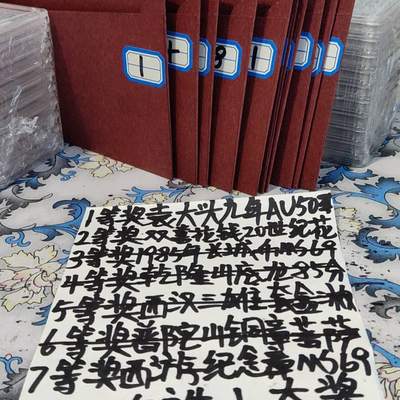 1
8
1
1等奖袁大头九年AU50
2等奖双喜花钱20世纪花
3等奖1985年长城币MS69
4等奖乾隆山底龙85分
5等奖西汉三雄大全套
6等奖普陀山铜章菩萨
7等奖西游纪念章MS69
大奖